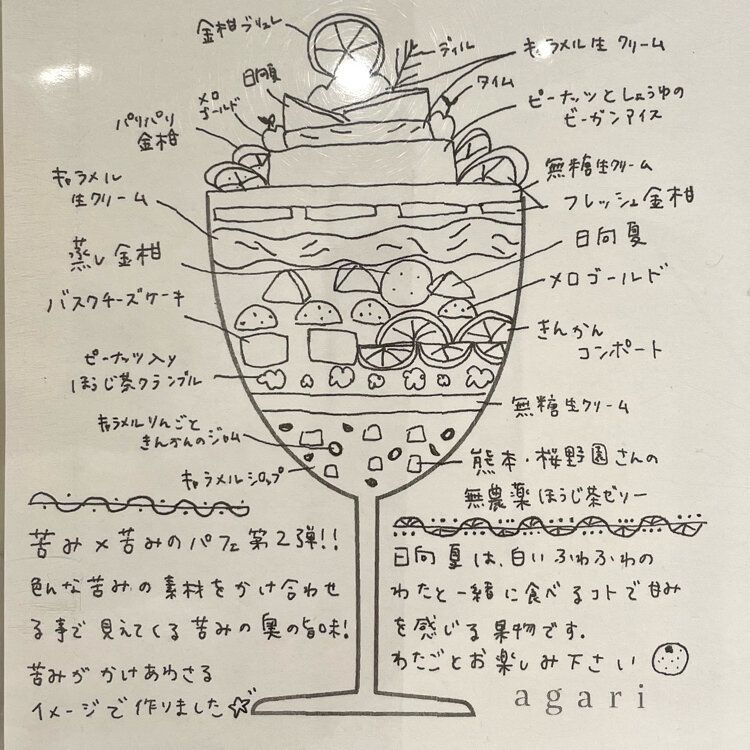 金柑ブリュレ
ディル
キャラメル生クリーム
日向夏
タイム
メロ
ゴールド
ピーナッツとしょうゆの
ビーガンアイス
パリパリ
金柑
無糖生クリーム
キャラメル
生クリーム
フレッシュ金柑
日向夏
蒸し金柑
メロゴールド
バスクチーズケーキ
きんかん
コンポート
ピーナッツ入り
ほうじ茶クランブル
無糖生クリーム
キャラメルりんごと
きんかんのジャム
キャラメルシロップ
熊本・桜野園さんの
無農薬ほうじ茶ゼリー
苦み×苦みのパフェ第2弾!!
色んな苦みの素材をかけ合わせ
る事で見えてくる苦みの奥の旨味!
苦みがかけあわさる
イメージで作りました☆
日向夏は、白いふわふわの
わたと一緒に食べるコトで甘み
を感じる果物です.
わたごとお楽しみ下さい
agari